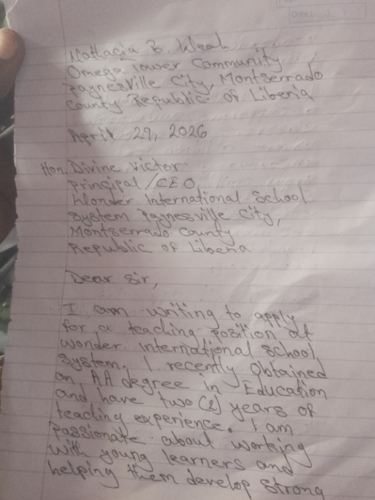 B. Weah
Omega Tower Community
Paynesville City, Montserrado
County Republic of Liberia
April 29, 2026
Hon. Divine Victor
Principal/CEO
Wonder International School
System Paynesville City,
Montserrado County
Republic of Liberia
Dear Sir,
I am writing to apply
for a teaching position at
Wonder International School
System. I recently obtained
an AA degree in Education
and have two (2) years of
teaching experience. I am
passionate about working
with young learners and
helping them develop strong